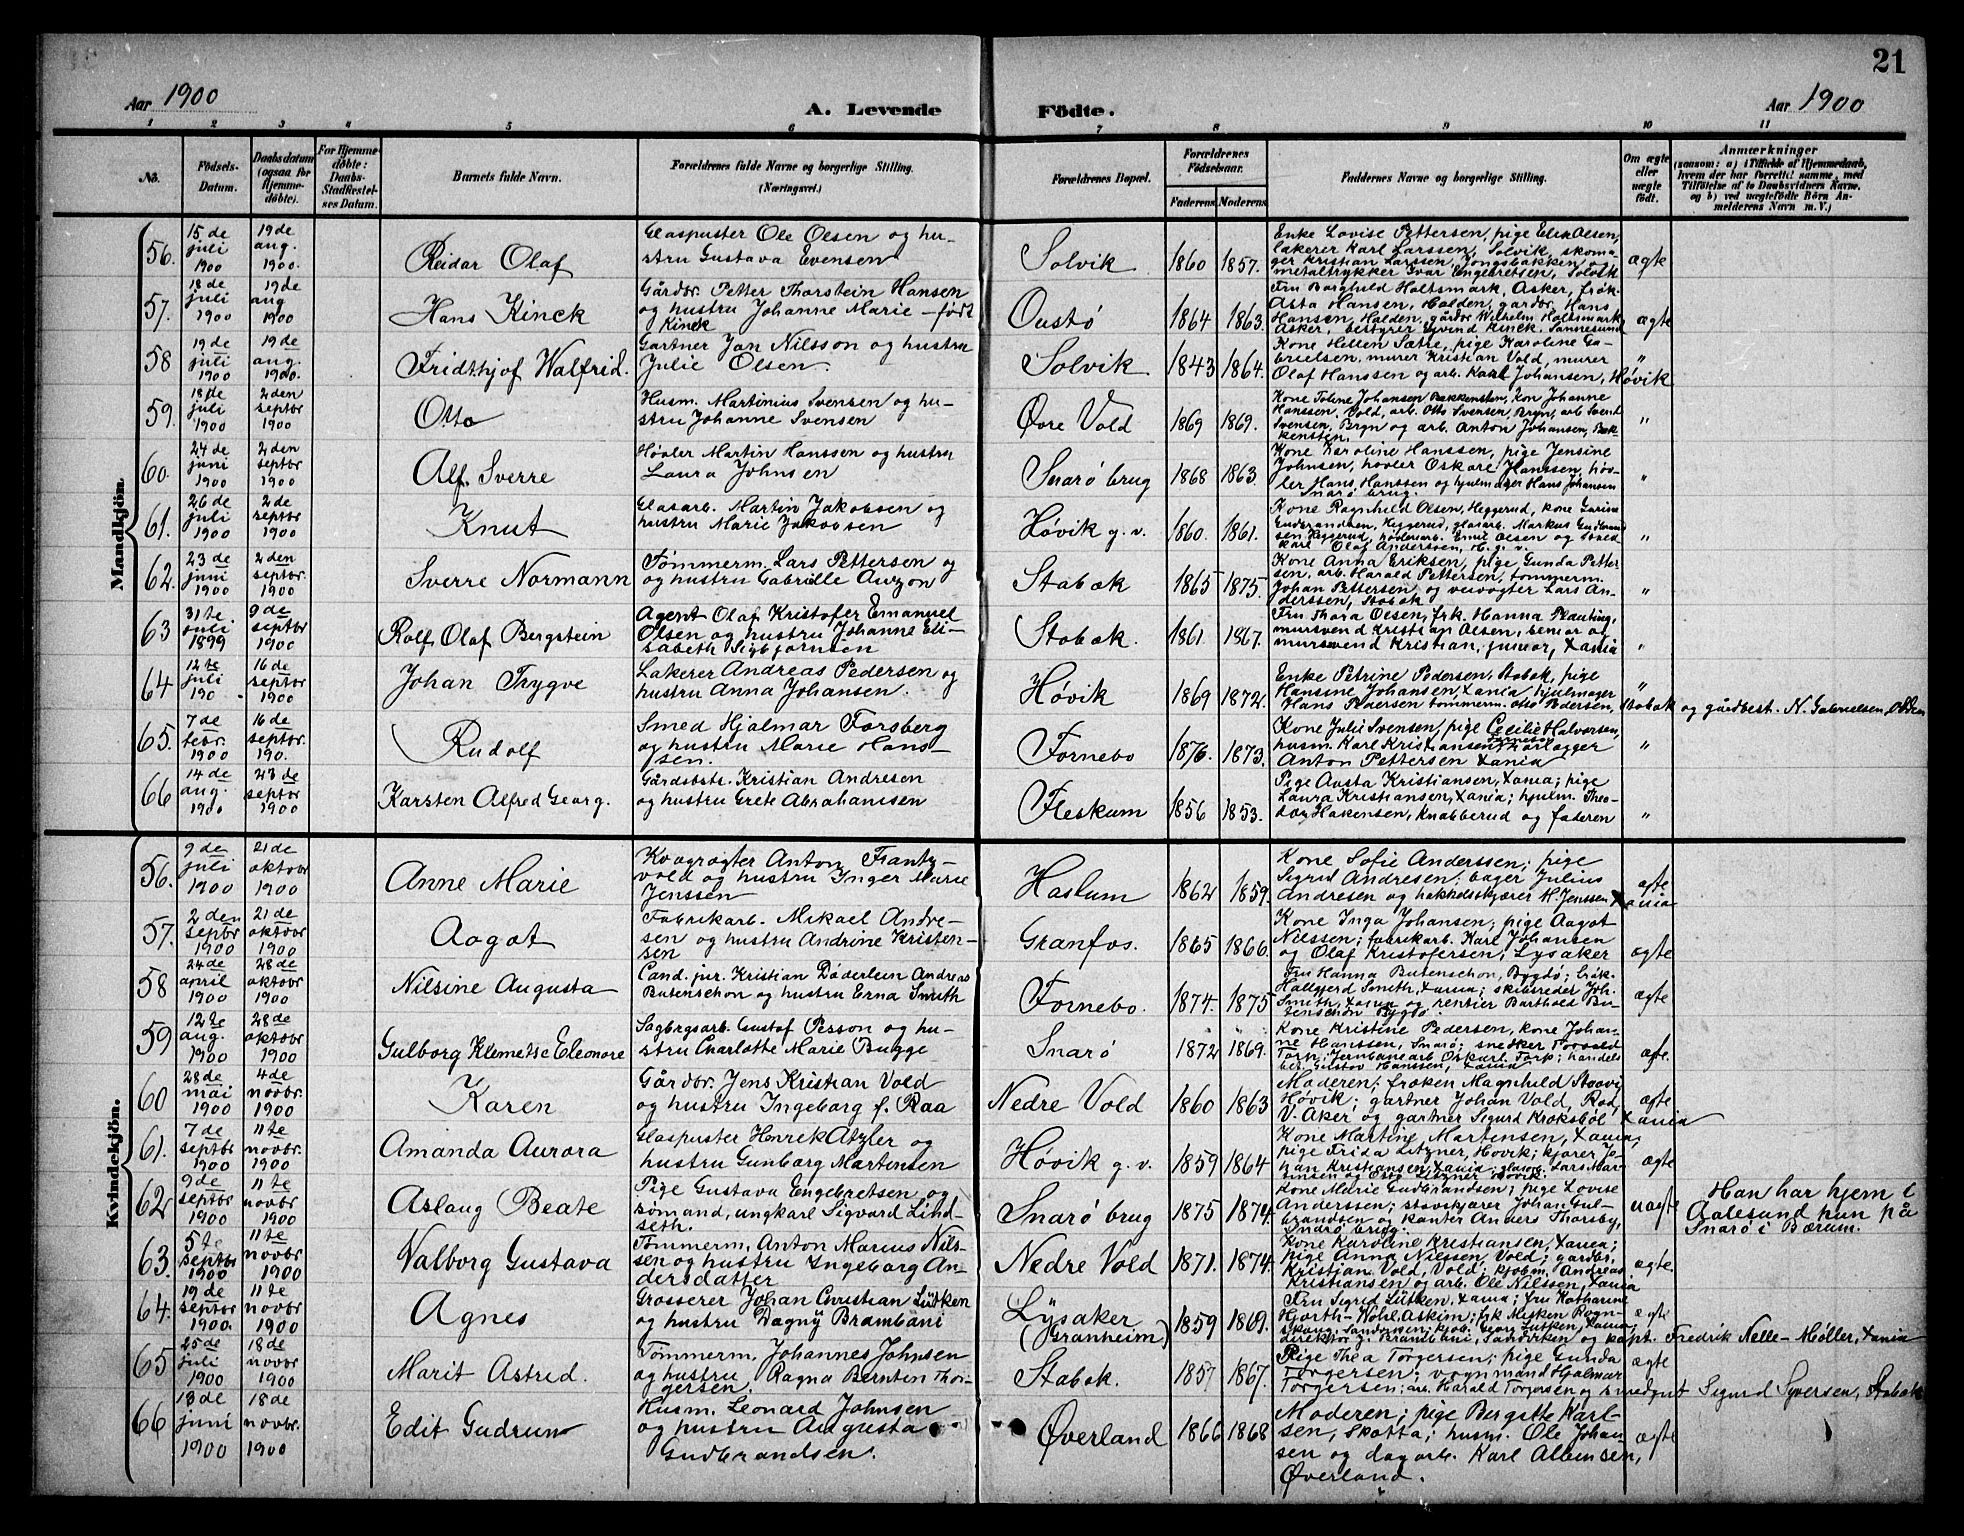 21
Aar 1900
A. Levende Födte.
Aar 1900
1 2 3 4 5 6 7 8 9 10 11
No.
Födsels-Datum.
Daabsdatum (ogsaa for Hjemme-döbte).
For Hjemme-döbte: Daabs-Stadfæstel-ses Datum.
Barnets fulde Navn.
Forældrenes fulde Navne og borgerlige Stilling. (Næringsvei.)
Forældrenes Bopæl.
Forældrenes Födselsaar.
Faderens Moderens
Faddernes Navne og borgerlige Stilling.
Om ægte eller uægte födt.
Anmærkninger
(saasom: a) i Tilfælde af Hjemmedaab, hvem der har forrettet samme, med Tilföielse af to Daabsvidners Navne, og b) ved uægtefödte Börn An-melderens Navn m.V.)
Mandkjön.
56. 15 de juli 1900 19 de aug. 1900. Reidar Olaf
Glaspuster Ole Olsen og hu-
stru Gustava Evensen
Solvik 1860 1857.
Enke Lovise Pettersen, pige Elen Olsen,
lakerer Karl Larssen, Solvik, skoma-
ger Kristian Larssen, Jongsbakken og
metaltrykker Ivar Engebretsen, Solvik
ægte
57. 18 de juli 1900 19 de aug 1900 Hans Kinck
Gårdbr. Petter Thorstein Hansen
og hustru Johanne Marie – født
Kinck
Oustø 1864 1863.
Fru Borghild Holtsmark, Asker, frøk.
Asta Hansen, Halden, gårdbr. Hans
Hansen, Halden, gårdbr Wilhelm Holtsmark,
Asker, bestyrer Eyvind Kinck, Sannesund
ægte
58 19 de juli 1900 19 de aug. 1900. Fridthjof Walfrid.
Gartner Jan Nilsson og hustru
Julie Olsen.
Solvik 1843 1864.
Kone Hellen Sætre, pige Karoline Ga-
brielsen, murer Kristian Vold, murer
Olaf Hanssen og arb. Karl Johansen, Høvik
"
59. 18 de juli 1900 2 den septbr 1900 Otto
Husm. Martinius Svensen og hu-
stru Johanne Svensen
Øvre Vold 1869 1869.
Kone Toline Johansen Bakkensten, Kon Johanne
Hanssen, Vold, arb. Otto Svensen, Bryn, arb Svent
Svensen, Bryn og arb. Anton Johansen, Bak-
kensten.
"
60. 24 de juni 1900 2 den septbr 1900 Alf Sverre
Høvler Martin Hanssen og hustru
Laura Johnsen
Snarø brug 1868 1863.
Kone Karoline Hanssen, pige Jensine
Johnsen, høvler Oskar Hanssen, høv-
ler Hans Hanssen og hjulmager Hans Johansen
Snarø brug.
"
61. 26 de juli 1900 2 de septbr 1900 Knut
Glasarb. Martin Jakobsen og
hustru Marie Jakobsen
Høvik g. v. 1860. 1861.
Kone Ragnhild Olsen, Heggerud, kone Gurine
Gudbrandsen, Heggerud, glasarb. Markus Gudbrand
sen Heggerud,
Olaf Anderssen, H. g. v.
"
62. 23 de juni 1900 2 den septbr. 1900 Sverre Normann
Tømmerm. Lars Pettersen og
og hustru Gabrielle Auzon
Stabæk 1865 1875.
Kone Anna Eriksen, pige Gunda Petter
sen, arb. Harald Pettersen, tømmerm.
Johan Pettersen og veivogter Lars An-
derssen, Stabæk
"
63 31 te juli 1899 9 de septbr 1900 Rolf Olaf Bergstein
Agent Olaf Kristofer Emanuel
Olsen og hustru Johanne Eli-
sabeth Sigbjørnsen
Stabæk. 1861. 1867.
Fru Thora Olsen, frk. Hanna Plauting,
mursvend Kristian Olsen, senior og
mursvend Kristian, junior, Xania
"
64 12 te juli 190 16 de septbr 1900 Johan Trygve
Lakerer Andreas Pedersen og
hustru Anna Johansen.
Høvik 1869 1872.
Enke Petrine Pedersen, Stabæk, pige
Hansine Johansen, Xania, hjulmager
Hans Pedersen tømmerm. Otto Pedersen, Stabæk og gårdbest. N. Gabrielsen, Odden
"
65. 7 de febr. 1900 16 de septbr. 190. Rudolf
Smed Hjalmar Forsberg
og hustru Marie Hans-
sen.
Fornebo 1876. 1873.
Kone Julie Svensen, pige Cecilie Halvorsen,
husm. Karl Kristiansen, Fornebo
Anton Pettersen Xania
"
66 14 de aug. 1900 23 de septbr 1900 Karsten Alfred Georg.
Gårdsbstr. Kristian Andresen
og hustru Grete Abrahamsen
Fleskum 1856 1853.
Pige Austa Kristiansen, Xania; pige
Laura Kristiansen, Xania; hjulm. Theo-
dor Hakensen, Knabberud og faderen
"
Kvindekjön.
56. 9 de juli 1900 21 de oktobr 1900 Anne Marie
Kvægrøgter Anton Frantz-
vold og hustru Inger Marie
Jenssen
Haslum 1862 1859.
Kone Sofie Anderssen; pige
Sigrid Andresen; bager Julius
Andresen og hekkelskjærer H. Jenssen, Xania
ægte
57. 2 den septbr 1900 21 de oktobr 1900 Aagot
Fabrikarb. Mikael Andre-
sen og hustru Andrine Kristen-
sen
Granfos. 1865 1866.
Kone Inga Johansen; pige Aagot
Nilssen; fabrikarb. Karl Johansen
og Olaf Kristofersen, Lysaker
ægte
58 24 de april 1900 28 de oktobr 1900 Nilsine Augusta
Cand. jur. Kristian Døderlein Andreas
Butenschøn og hustru Erna Smith
Fornebo. 1874. 1875
Fru Hanna Butenschøn, Bygdø; frk.
Hallgjerd Smith, Xania; skibsreder Joh.
Smith, Xania og rentier Barthold Bu-
tenschøn Bygdø.
ægte
59 12 te aug. 1900 28 de oktobr 1900 Gulborg Klemetse Eleonore
Sagbrgsarb. Gustof Persson og hu-
stru Charlotte Marie Bugge
Snarø 1872 1869.
Kone Kristine Pedersen, kone Johan-
ne Hanssen, Snarø; snedker Torvald
Torp; Jernbanearb Oskarl. Torp; handels
ber. Gustov Hanssen, Xania
ægte.
60 28 de mai 1900 4 de novbr. 1900 Karen
Gårdbr. Jens Kristian Vold
og hustru Ingeborg f. Raa
Nedre Vold 1860 1863
Moderen; frøken Magnhild Staavi
Høvik; gartner Johan Vold, Röd,
V. Aker, og gartner Sigurd Kroksbøl Xania
ægte
61. 7 de septbr 1900 11 te novbr. 1900 Amanda Aurora
Glaspuster Henrik Atzler og
hustru Gunborg Martensen
Høvik g. v. 1859 1864
Kone Martine Martensen, Xania;
pige Frida Litzner, Høvik; kjører Jo-
han Kristiansen, Xania; glasarb. Lars Mar-
tinsen og Litzner Høvik.
ægte
62. 9 de septbr 1900 11 te novbr 1900 Aslaug Beate
Pige Gustava Engebretsen og
sømand, ungkarl Sigvard Lind-
seth.
Snarø brug 1875 1874.
Kone Marie Gudbrandsen; pige Lovise
Anderssen; stavskjærer Johan Gul-
brandsen og kanter Anders Thorsby,
Snarø brug
uægte
Han har hjem i
Aalesund hun på
Snarø i Bærum.
63. 5 te septbr 1900 11 te novbr 1900 Valborg Gustava
Tømmerm, Anton Marius Nils-
sen og hustru Ingeborg An-
dersdatter
Nedre Vold 1871. 1874.
Kone Karoline Kristiansen, Xania;
pige Anna Nielsen Vold; gårdbr.
Kristian Vold, Vold; kjøbm. Andreas
Kristiansen og arb. Ole Nilssen, Xania
ægte.
64. 19 de septbr 1900. 11 te novbr 1900 Agnes
Grosserer Johan Christian Lütken
og hustru Dagny Brambani
Lysaker
(Granheim) 1859 1869.
Fru Sigrid Lütken, Xania; fru Katharine
Hjorth-Wøhl, Askim; frk Misken Rogn-
skoug, Sandviken; kjøb. Georg Lütken, Xania;
direktør G. Brambani, Sandviken og kapt. Fredrik Nelle-Møller, Xania
ægte
65 25 de juli 1900 18 de novbr 1900 Marit Astrid.
Tømmerm. Johannes Johnsen
og hustru Ragna Berntin Thor-
gersen.
Stabæk. 1857 1867.
Pige Thea Torgersen; pige Gunda
Torgersen; vognmand Hjalmar
Torgersen; arb. Harald Torgersen og smedgut Sigurd Syversen, Stabæk
ægte
66 13 de juni 1900 18 de novbr. 1900 Edit Gudrun
Husm. Leonard Johnsen
og hustru Augusta
Gudbrandsen.
Øverland 1866 1868
Moderen; pige Bergitte Karl-
sen, Skotta; husm. Ole Johan-
sen og dagarb. Karl Albinsen,
Øverland.
ægte